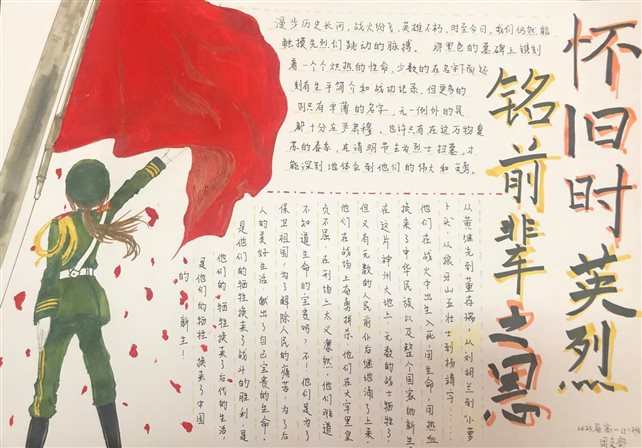 怀旧时英烈
铭前辈之恩
漫步历史长河,战火纷飞,英雄不朽,时至今日,我们仍然能
触摸先烈们跳动的脉搏。那黑色的墓碑上镌刻
着一个个炽热的性命,少数的在名字下面还
刻有生平简介和战功记录,但更多的
则只有单薄的名字,无一例外的是
都十分庄严肃穆。也许只有在这万物复
苏的春季,在清明节去为烈士扫墓,才
能深刻地体会到他们的伟大和
从黄继光到董存瑞,从刘胡兰到“小萝
卜头”,从狼牙山五壮士到杨靖宇……
他们在战火中出生入死,用生命、用热血
换来了中华民族以及整个国家的新生
在这片神州大地上,无数的战士牺牲了,
但又有无数的人民前仆后继地涌了上来,
他们在战场上奋勇拼杀,他们在大牢里坚
贞不屈,在刑场上大义凛然,他们难道
不知道生命的宝贵吗?不!他们是为了
保卫祖国,为了解除人民的痛苦,为了后
人的美好生活,献出了自己宝贵的生命。
是他们的牺牲换来了战斗的胜利,是
他们的牺牲换来了后代的生活,
是他们的牺牲,换来了中国
的新生!